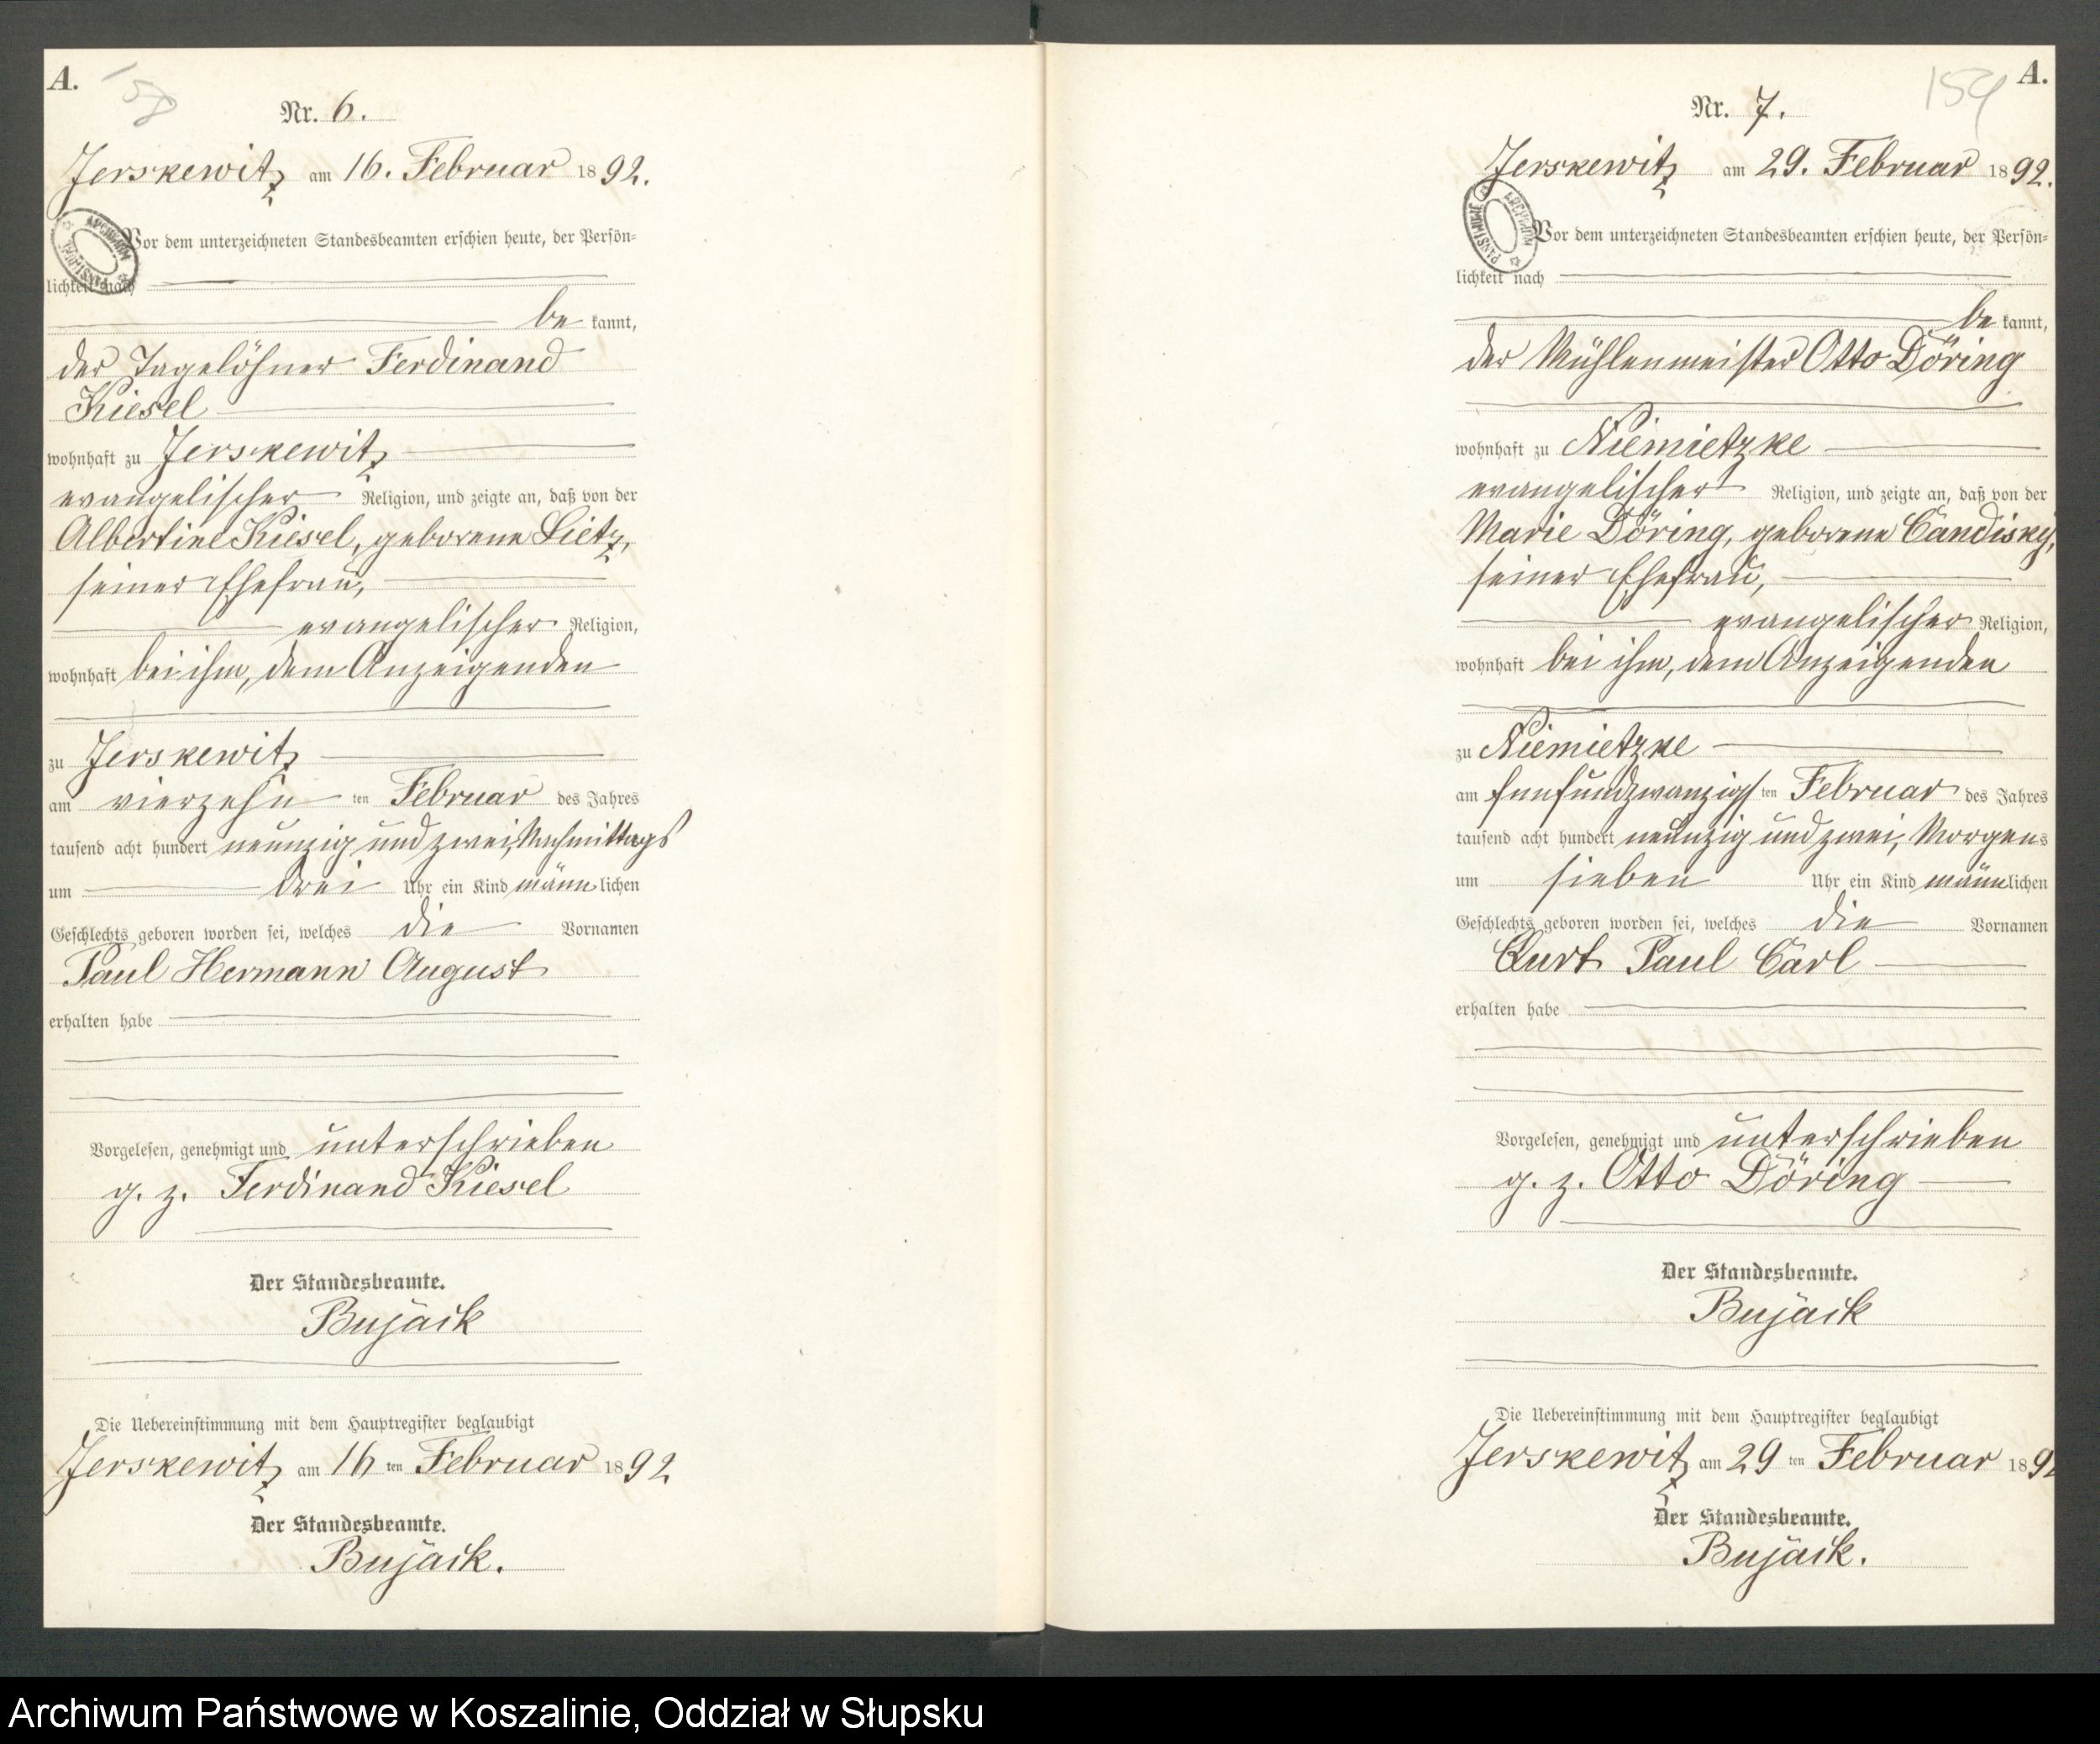 A.
158
Nr. 6.
Jerskewitz am 16. Februar 1892.
Vor dem unterzeichneten Standesbeamten erschien heute, der Persön=
lichkeit nach
be kannt,
der Tagelöhner Ferdinand
Kiesel
wohnhaft zu Jerskewitz
evangelischer Religion, und zeigte an, daß von der
Albertine Kiesel, geborene Lietz,
seiner Ehefrau,
evangelischer Religion,
wohnhaft bei ihm, dem Anzeigenden
zu Jerskewitz
am vierzehn ten Februar des Jahres
tausend acht hundert neunzig und zwei, Nachmittags
um drei Uhr ein Kind männlichen
Geschlechts geboren worden sei, welches die Vornamen
Paul Hermann August
erhalten habe
Vorgelesen, genehmigt und unterschrieben
g. z. Ferdinand Kiesel
Der Standesbeamte.
Bujack
Die Uebereinstimmung mit dem Hauptregister beglaubigt
Jerskewitz am 16 ten Februar 1892
Der Standesbeamte.
Bujack.
A.
159
Nr. 7.
Jerskewitz am 29. Februar 1892.
ARCHIWUM PAŃSTWOWE
Vor dem unterzeichneten Standesbeamten erschien heute, der Persön=
lichkeit nach
be kannt,
der Mühlenmeister Otto Döring
wohnhaft zu Niemietzke
evangelischer Religion, und zeigte an, daß von der
Marie Döring, geborene Candisky,
seiner Ehefrau,
evangelischer Religion,
wohnhaft bei ihm, dem Anzeigenden
zu Niemietzke
am fünfundzwanzigsten Februar des Jahres
tausend acht hundert neunzig und zwei, Morgens
um sieben Uhr ein Kind männlichen
Geschlechts geboren worden sei, welches die Vornamen
Curt Paul Carl
erhalten habe
Vorgelesen, genehmigt und unterschrieben
g. z. Otto Döring
Der Standesbeamte.
Bujack
Die Uebereinstimmung mit dem Hauptregister beglaubigt
Jerskewitz am 29 ten Februar 1892
Der Standesbeamte.
Bujack.
Archiwum Państwowe w Koszalinie, Oddział w Słupsku